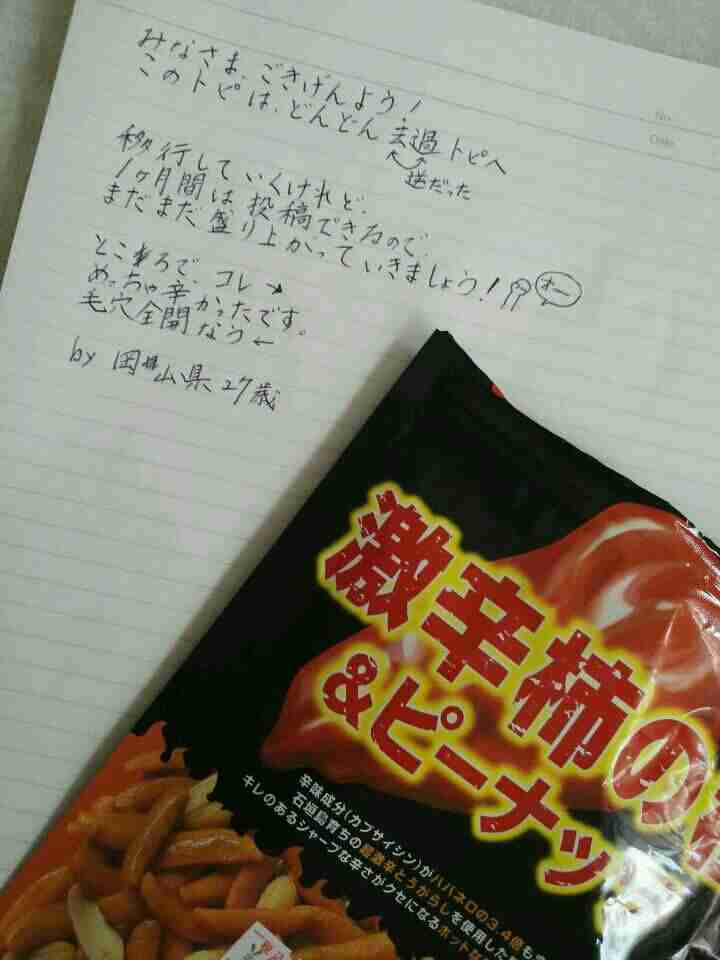 みなさま、ごきげんよう!
このトピは、どんどん 去過トピへ
逆だった
移行していくけれど、
1ヶ月間は投稿できるので、
まだまだ盛り上がっていきましょう!
おー
ところで、コレ→
めっちゃ辛かったです。
毛穴全開なう←
by 岡山県27歳
No.
Date
激辛柿の
&ピーナッ
辛味成分(カプサイシン)がハバネロの3.4倍も
石垣島育ちの超激辛とうがらしを使用した
キレのあるシャープな辛さがクセになるホットな